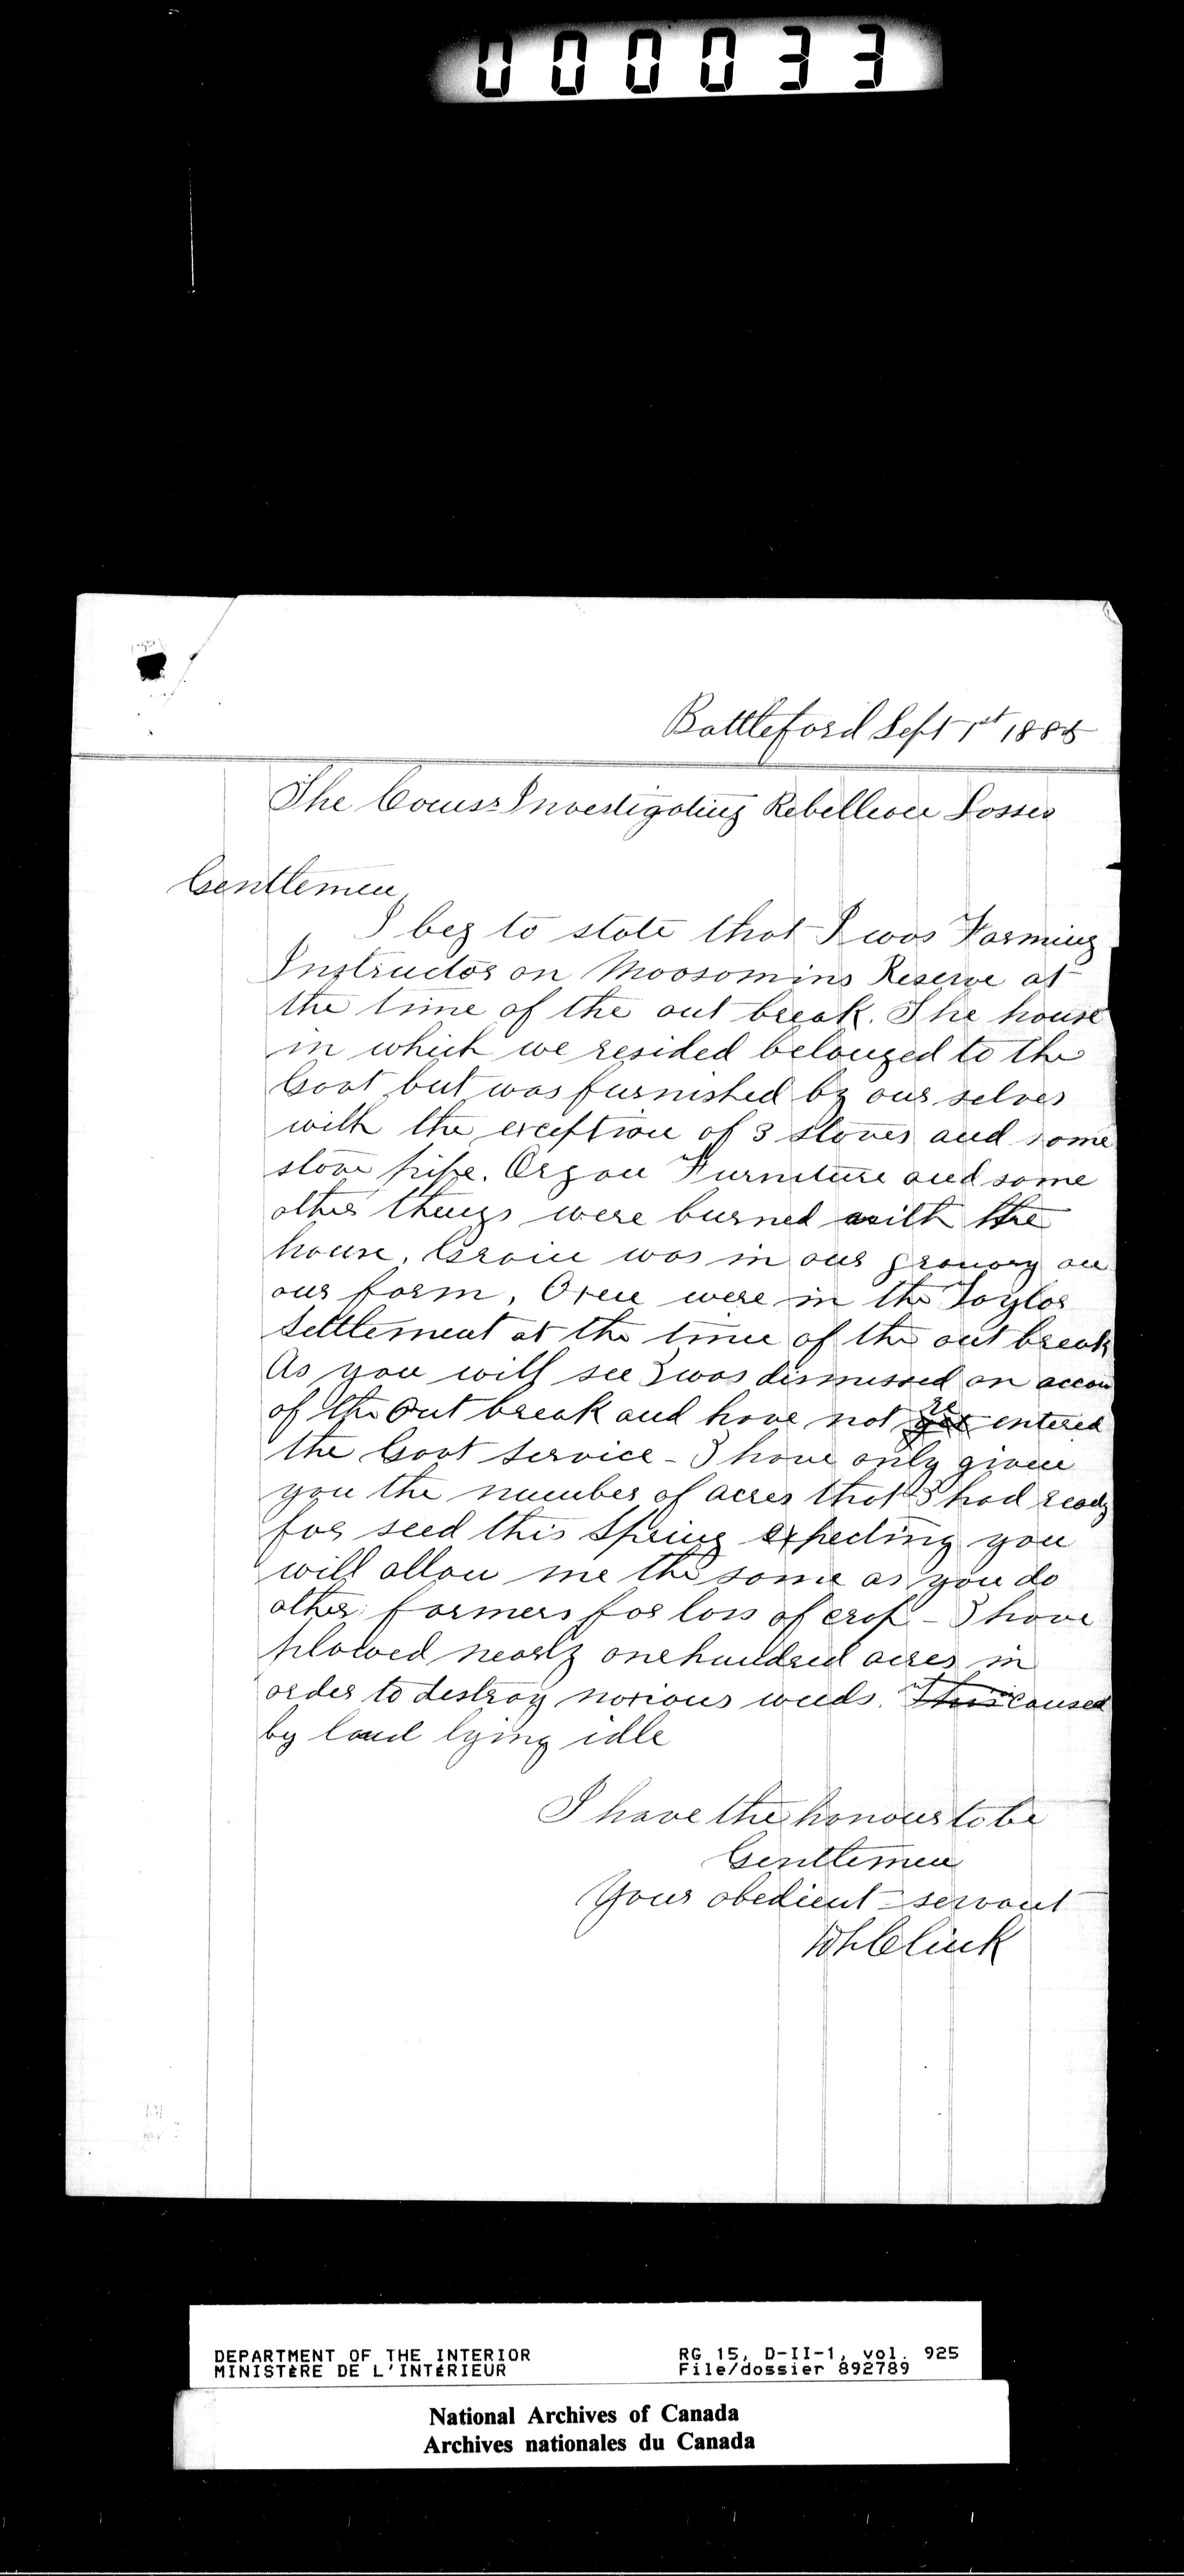 000033
Battleford Sept 1st 1885
The Comssr Investigating Rebellion Losses
Gentlemen,
I beg to state that I was Farming
Instructor on Moosomins Reserve at
the time of the out break. The house
in which we resided belonged to the
Govt but was furnished by our selves
with the exception of 3 stoves and some
stove pipe. Organ Furniture and some
other things were burned with the
house. Grain was in our granary on
our farm. Oxen were in the Taylor
Settlement at the time of the out break
As you will see I was dismissed on accou
of the Out break and have not re entered
the Govt service - I have only given
you the number of acres that I had ready
for seed this Spring expecting you
will allow me the same as you do
other farmers for loss of crop - I have
plowed nearly one hundred acres in
order to destroy noxious weeds. This caused
by land lying idle
I have the honour to be
Gentlemen
Your obedient servant
Clink
DEPARTMENT OF THE INTERIOR
MINISTÈRE DE L'INTÉRIEUR
RG 15, D-II-1, vol. 925
File/dossier 892789
National Archives of Canada
Archives nationales du Canada